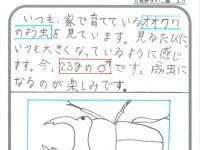 いつも、家で育てているオオクワ
のよう虫を見ています。見るたびに、
いつも大きくなっているように感じ
ます。今、23gの♂です。成虫に
なるのが楽しみです。